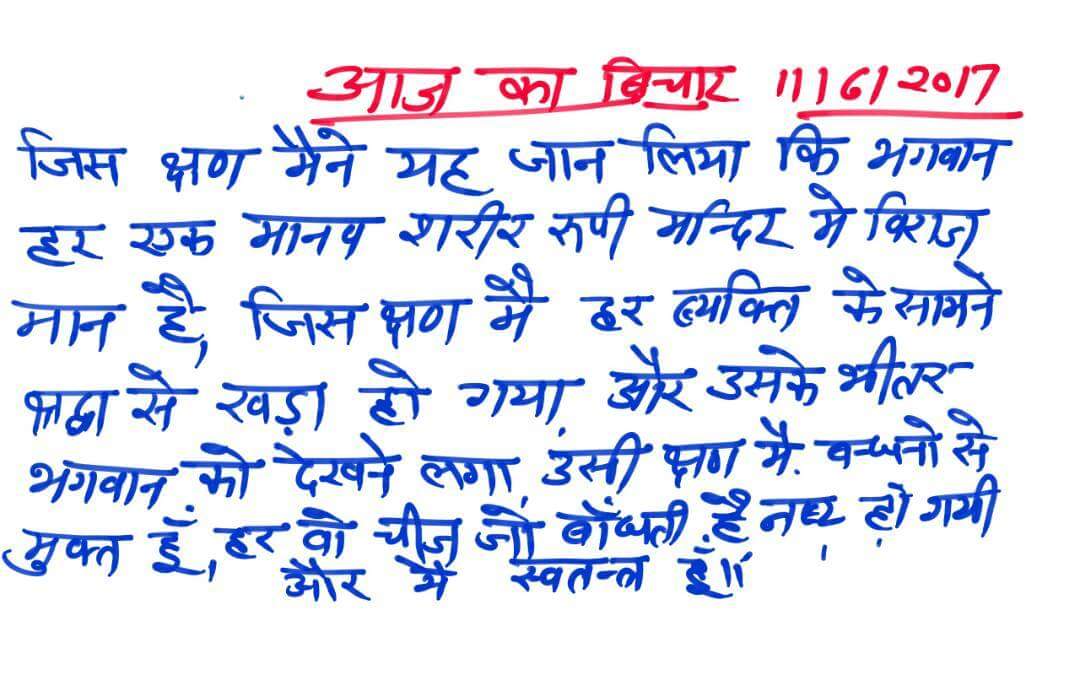 आज का विचार 11/6/2017
जिस क्षण मैंने यह जान लिया कि भगवान
हर एक मानव शरीर रुपी मन्दिर मे विराज
मान है, जिस क्षण मै हर व्यक्ति के सामने
श्रद्धा से खड़ा हो गया और उसके भीतर
भगवान को देखने लगा, उसी क्षण मै बन्धनो से
मुक्त हूँ, हर वो चीज जो बाँधती है नष्ट हो गयी
और मै स्वतन्त्र हूँ॥